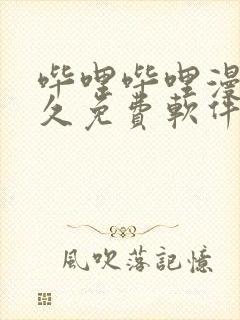 哔哩哔哩漫
久免費軟件
風吹落記憶